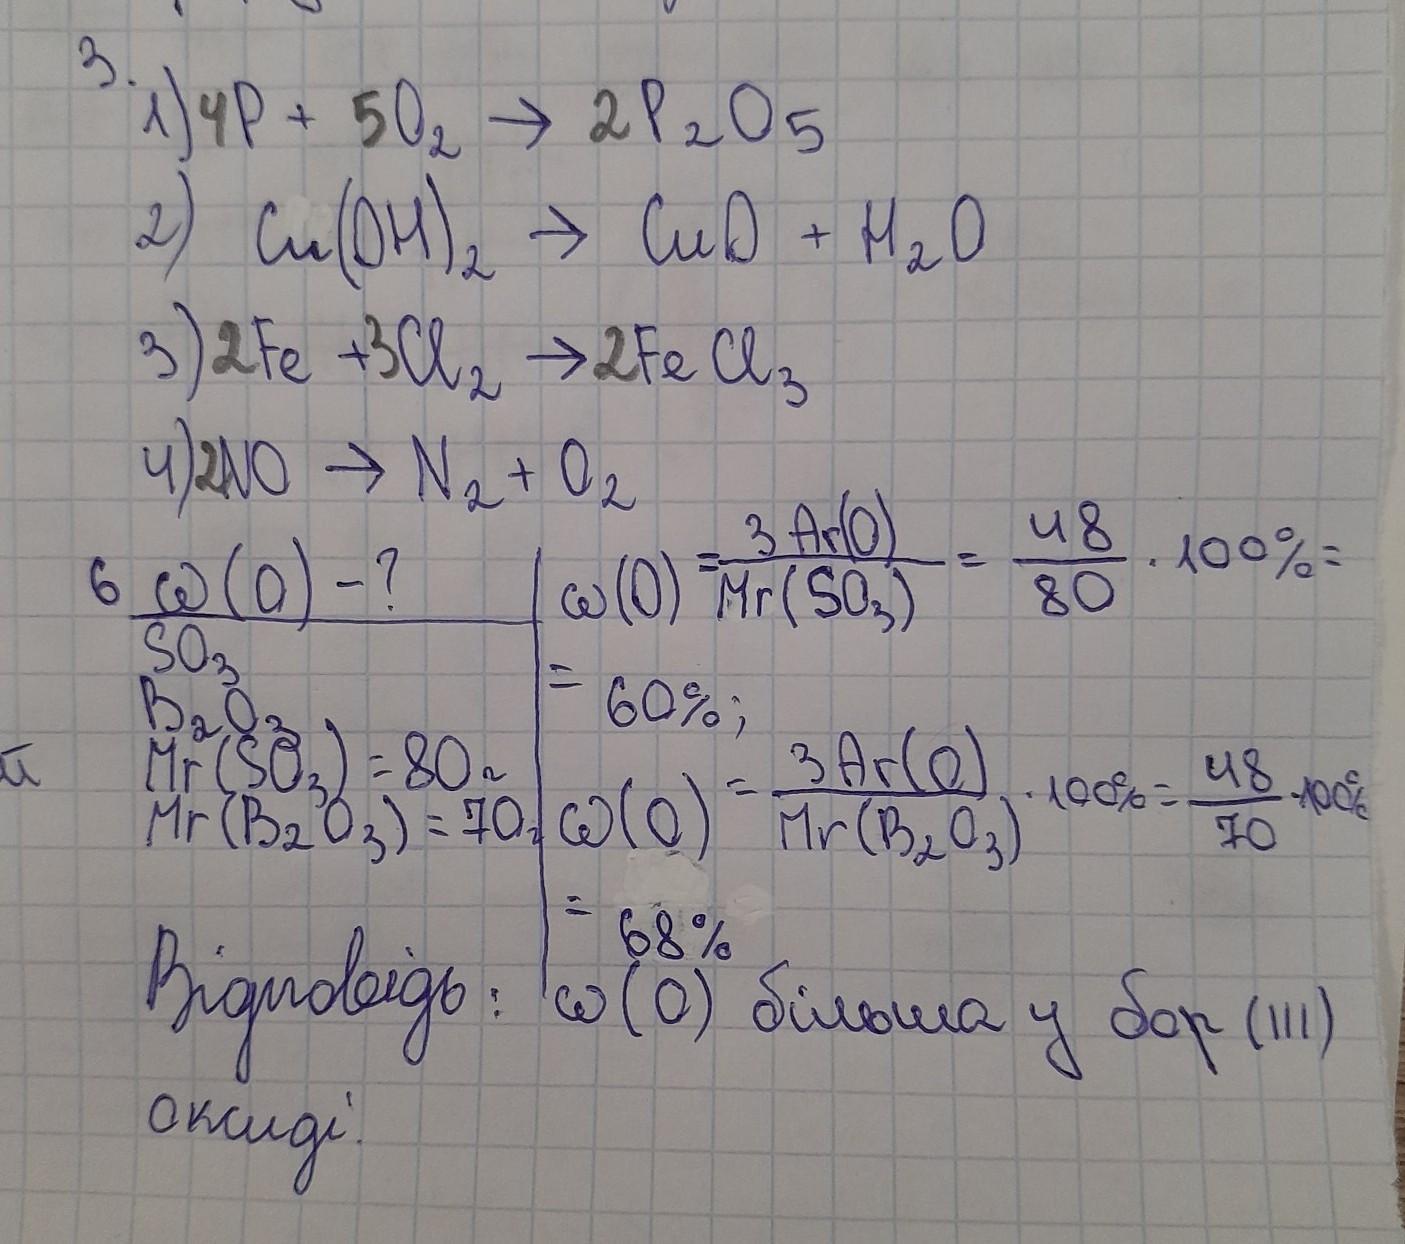 3.
1) 4P + 5O₂ → 2P₂O₅
2) Cu(OH)₂ → CuO + H₂O
3) 2Fe + 3Cl₂ → 2FeCl₃
4) 2NO → N₂ + O₂
6 ω(O) - ?
SO₃
B₂O₃
Mr(SO₃) = 80г
Mr(B₂O₃) = 70г
ω(O) = 3Ar(O) / Mr(SO₃) = 48/80 · 100% =
= 60%;
ω(O) = 3Ar(O) / Mr(B₂O₃) · 100% = 48/70 · 100%
= 68%
Відповідь: ω(O) більша у бор (III)
оксиді.